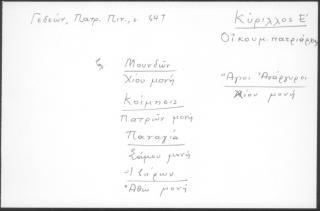 Γεδεών, Πατρ. Πιν., σ. 647
Κύριλλος Ε'
Οἰκουμ. πατριάρχης
Μουνδῶν
Χίου μονή
Κοίμησις
Πατρῶν μονή
Παναγία
Σάμου μονή
Ἰβήρων
Ἄθω μονή
Ἅγιοι Ἀνάργυροι
Χίου μονή